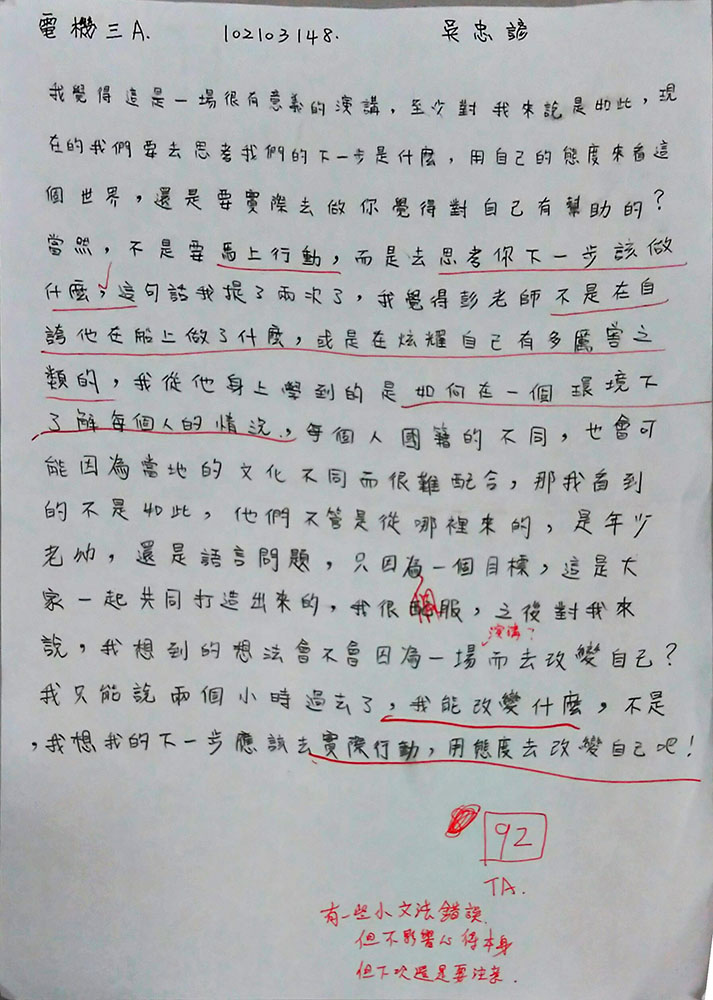 電機三A. 102103148. 吳忠諺
我覺得這是一場很有意義的演講，至少對我來說是如此，現
在的我們要去思考我們的下一步是什麼，用自己的態度來看這
個世界，還是要實際去做你覺得對自己有幫助的？
當然，不是要馬上行動，而是去思考你下一步該做
什麼，這句話我提了兩次了，我覺得彭老師不是在自
誇他在船上做了什麼，或是在炫耀自己有多厲害之
類的，我從他身上學到的是如何在一個環境下
了解每個人的情況，每個人國籍的不同，也會可
能因為當地的文化不同而很難配合，那我看到
的不是如此，他們不管是從哪裡來的，是年少
老幼，還是語言問題，只因為一個目標，這是大
家一起共同打造出來的，我很佩服，之後對我來
演講？
說，我想到的想法會不會因為一場而去改變自己？
我只能說兩個小時過去了，我能改變什麼，不是
，我想我的下一步應該去實際行動，用態度去改變自己吧！
92
TA.
有一些小文法錯誤
但不影響心得本身
但下次還是要注意.